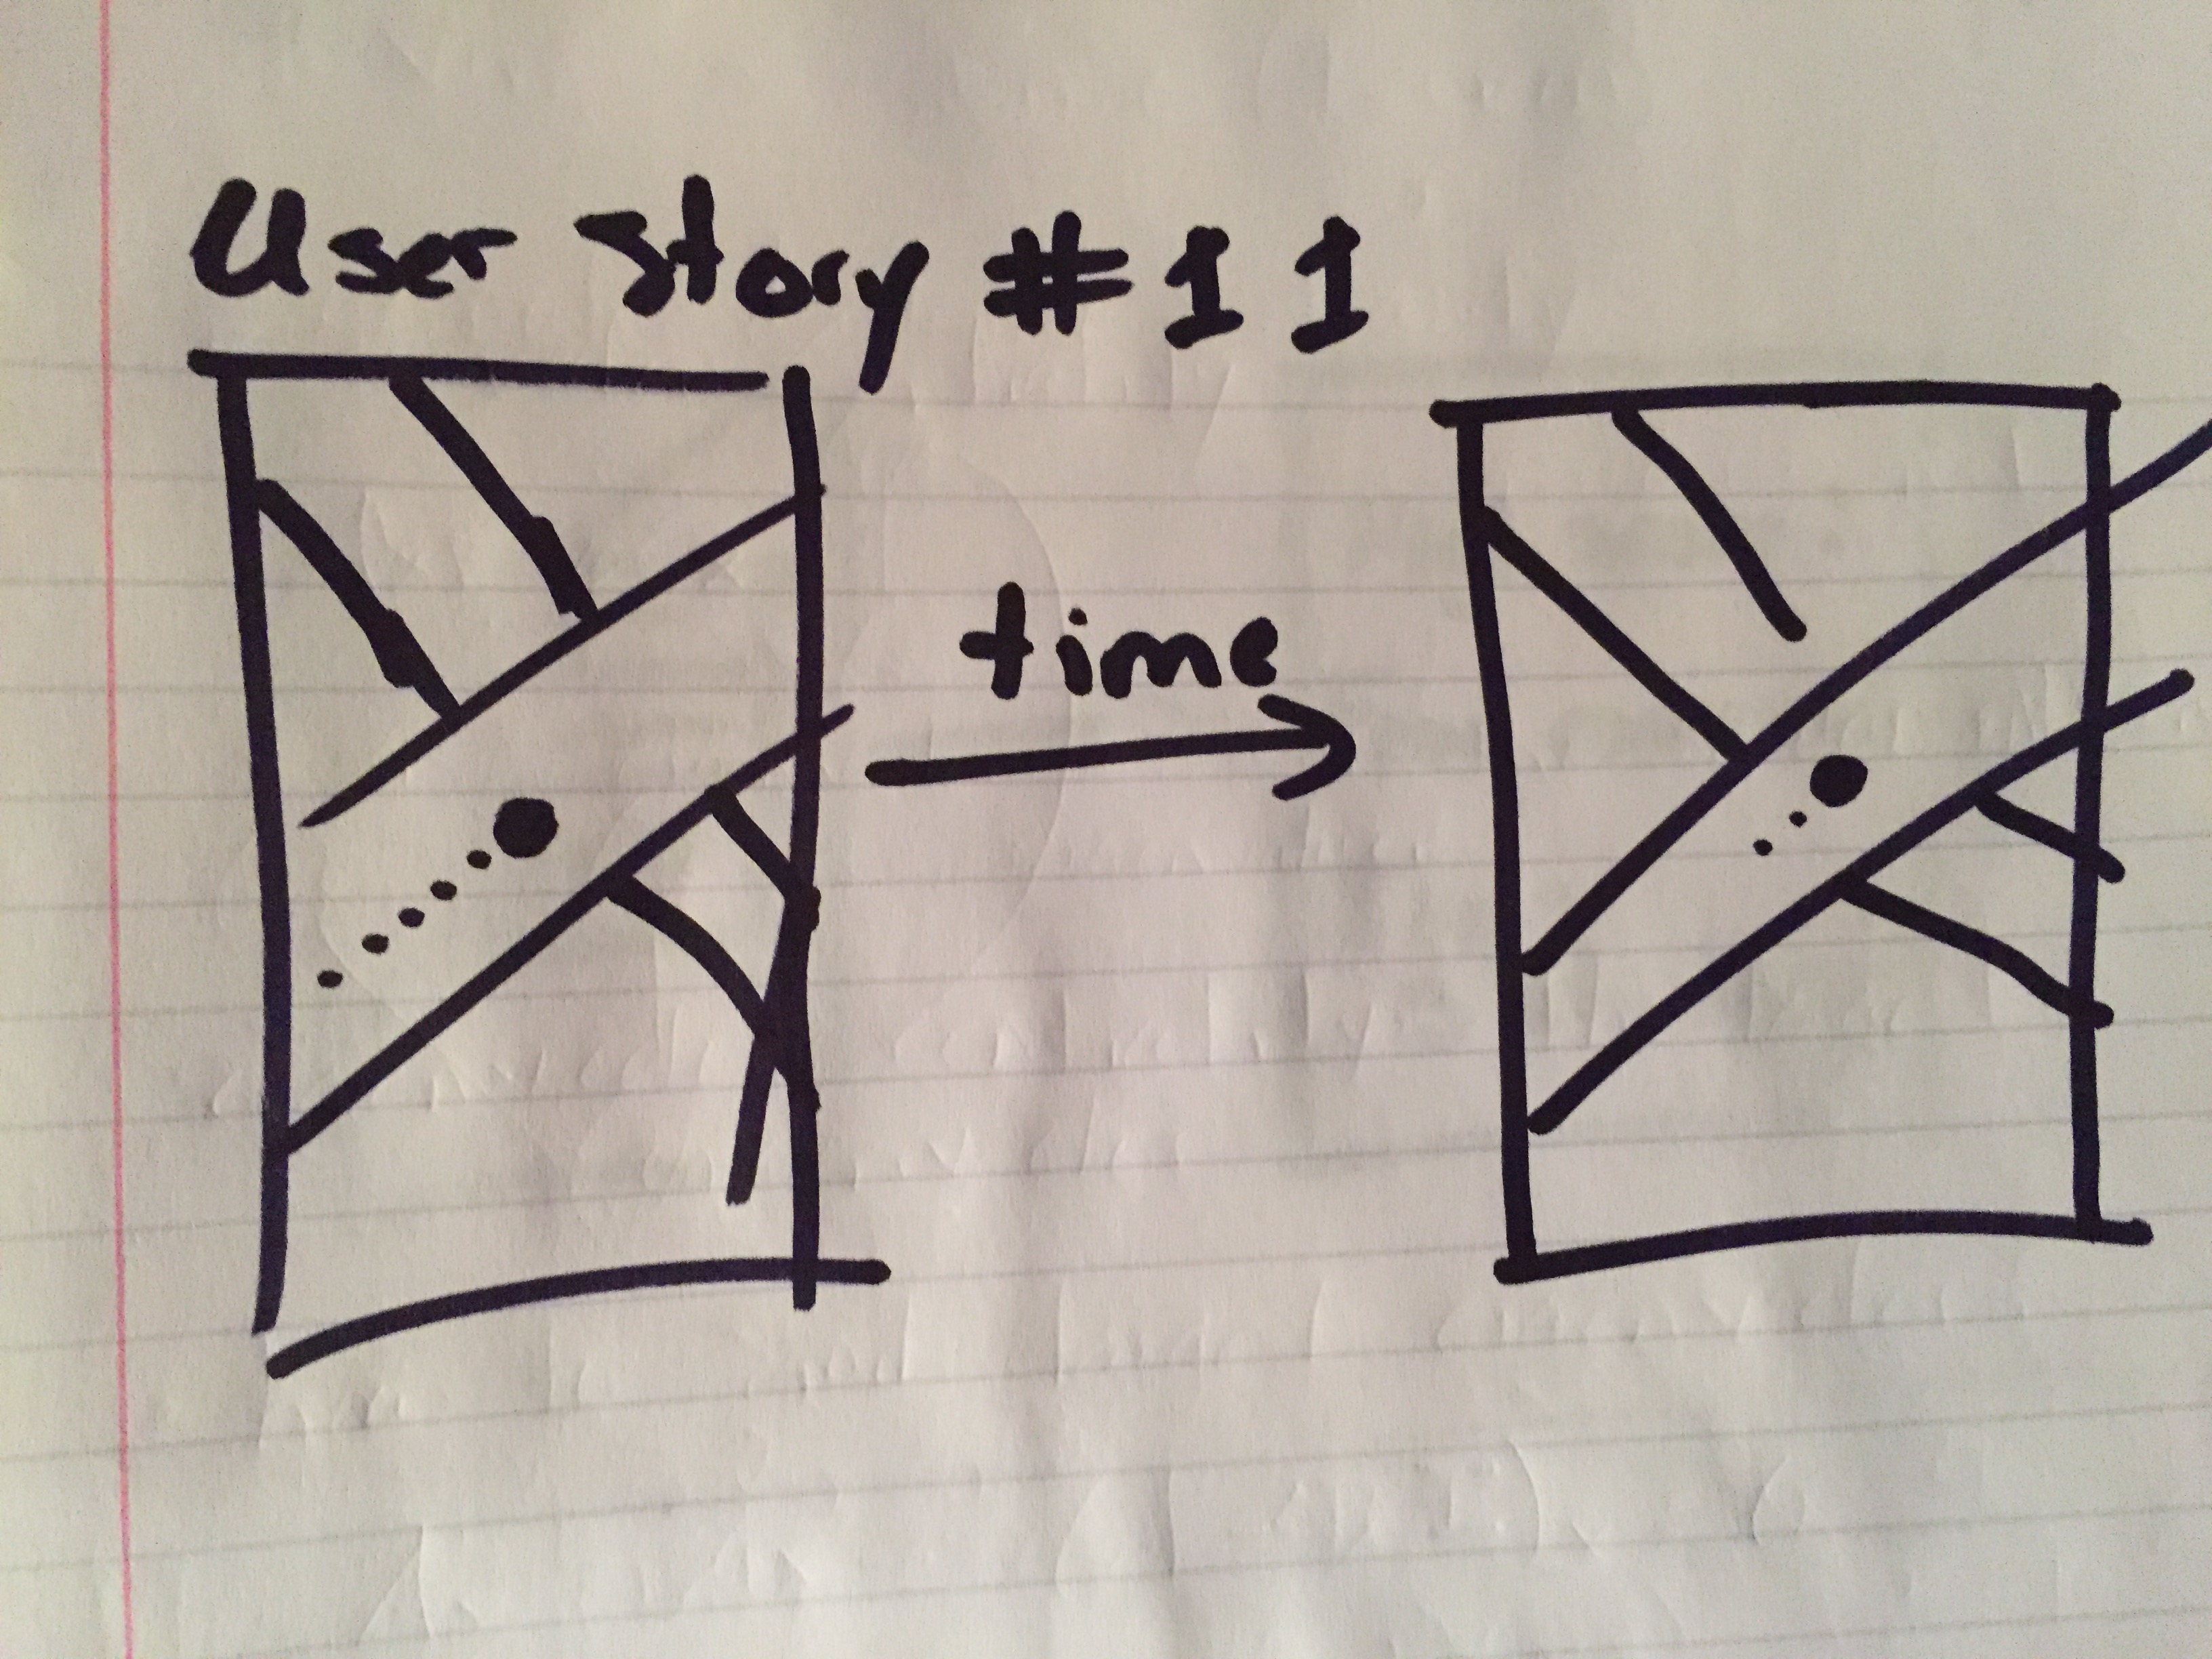 User Story #11
time